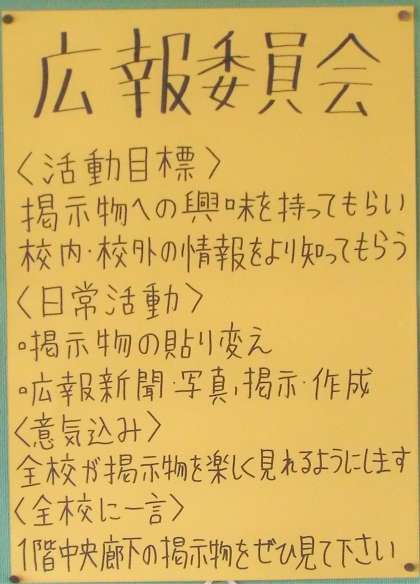 広報委員会
〈活動目標〉
掲示物への興味を持ってもらい
校内・校外の情報をより知ってもらう
〈日常活動〉
○掲示物の貼り変え
○広報新聞・写真,掲示・作成
〈意気込み〉
全校が掲示物を楽しく見れるようにします
〈全校に一言〉
1階中央廊下の掲示物をぜひ見て下さい